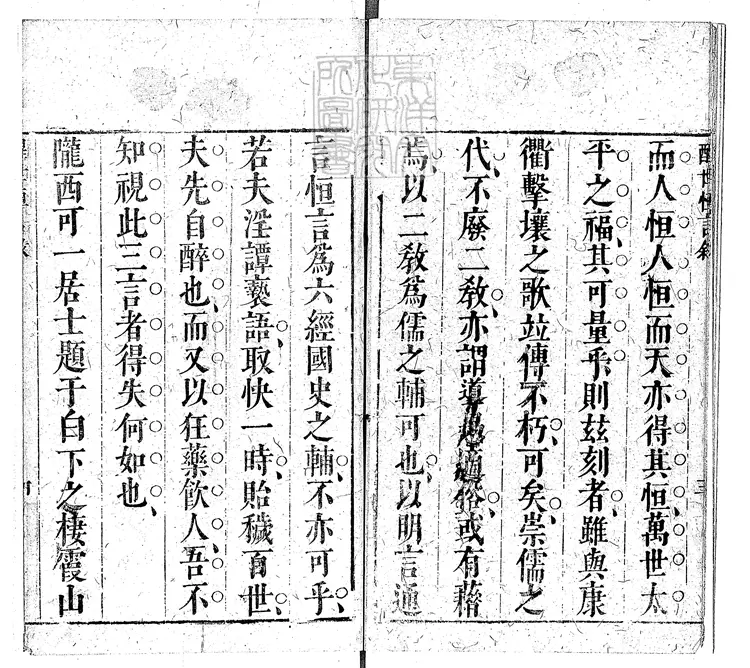 醒世恒言叙
三
而人恒人恒而天亦得其恒萬世太
平之福其可量乎則茲刻者雖與康
衢擊壤之歌並傳不朽可矣崇儒之
代不廢二教亦謂導愚適俗或有藉
焉以二教為儒之輔可也以明言通
言恒言為六經國史之輔不亦可乎
若夫淫譚褻語取快一時貽穢百世
夫先自醉也而又以狂藥飲人吾不
知視此三言者得失何如也
隴西可一居士題于白下之棲霞山